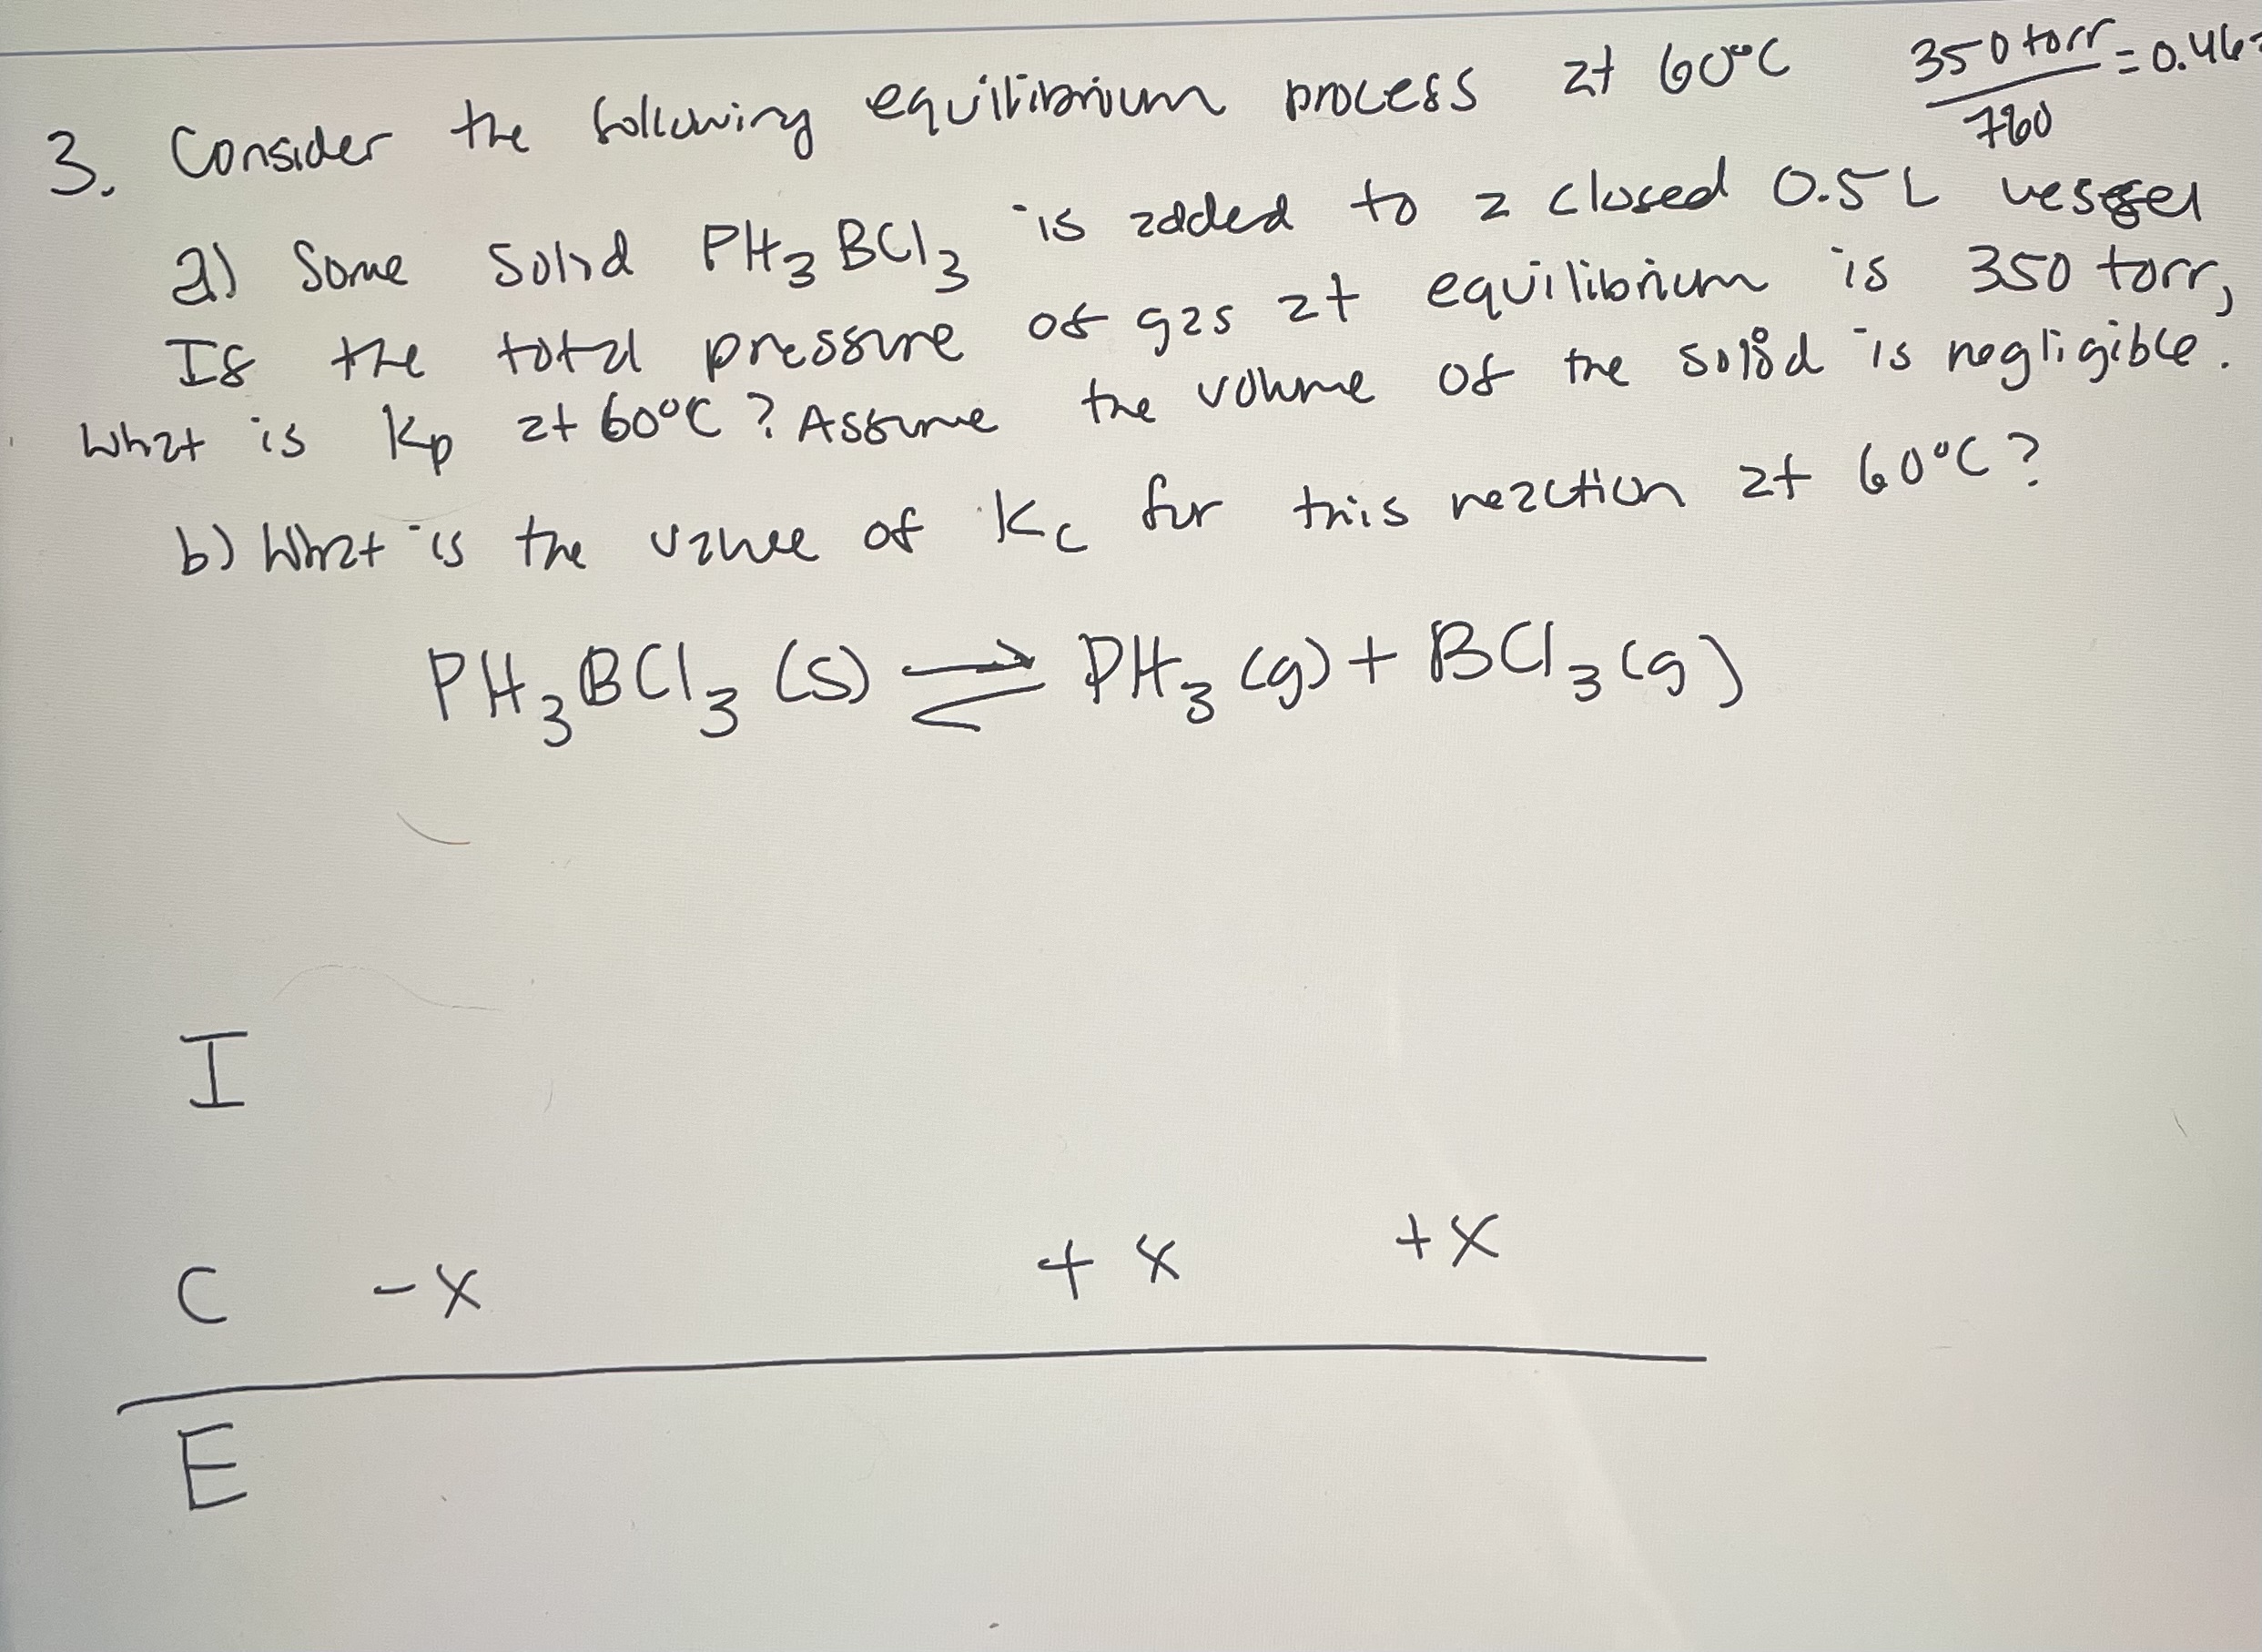 3. Consider the following equilibrium process at 60°C
350 torr = 0.46
760
a) Some Solid PH3BCl3 is added to a closed 0.5L vessel
If the total pressure of gas at equilibrium is 350 torr,
What is Kp at 60°C? Assume the volume of the solid is negligible.
b) What is the value of Kc for this reaction at 60°C?
PH3BCl3 (s) ⇌ PH3 (g) + BCl3 (g)
I
C -x +x +x
E